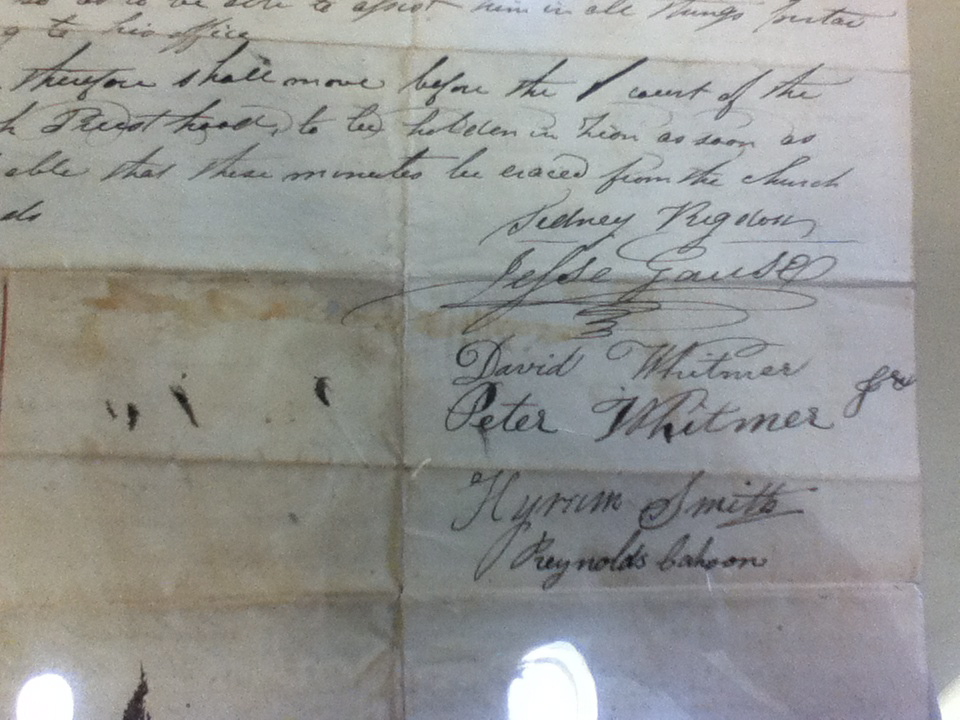 so as to be able to assist him in all things
g to his office
therefore shall move before the court of the
h Priesthood, to be holden in Zion as soon as
able that these minutes be eraced from the church
ds
Sidney Rigdon
Jesse Gause
David Whitmer
Peter Whitmer Jr
Hyrum Smith
Reynolds Cahoon